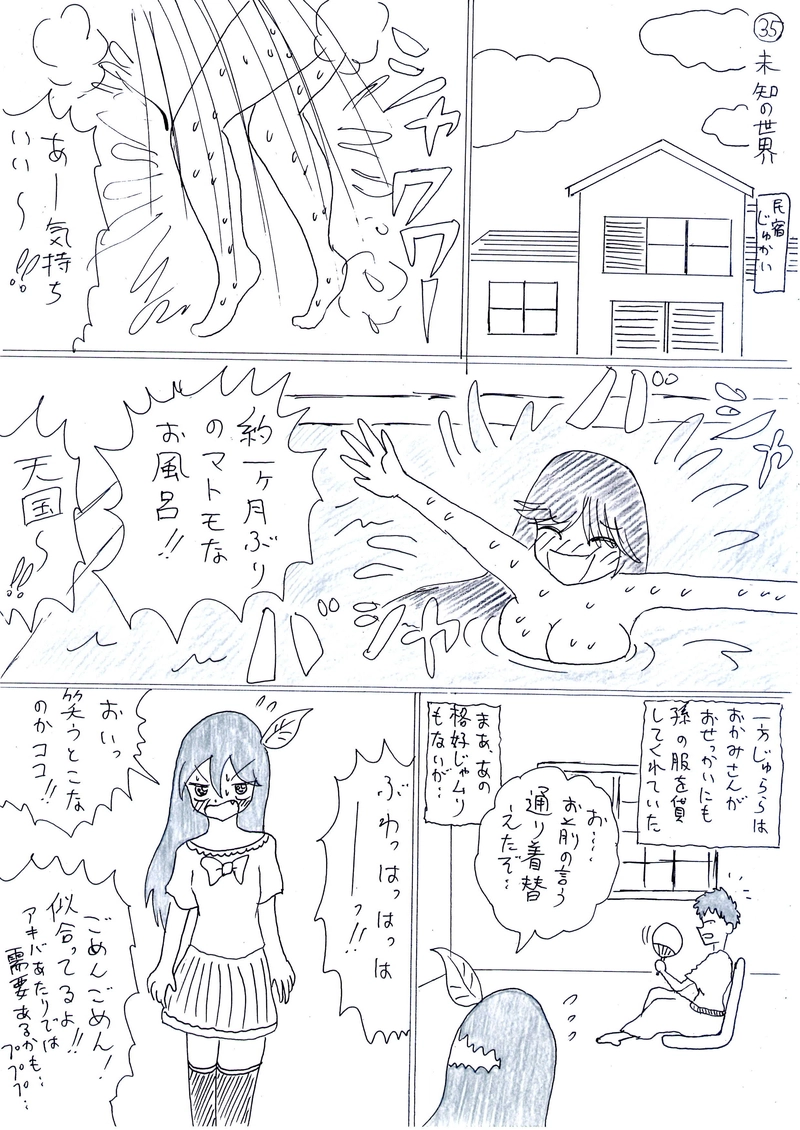 ㉟
未知の世界
民宿
じゅかい
シャワワー
あー気持ち
いい〜!!
バシャ
約一ヶ月ぶり
のマトモな
お風呂!!
バシャ
天国〜!!
一方じゅららは
おかみさんが
おせっかいにも
孫の服を貸
してくれていた
まあ、あの
格好じゃムリ
もないが…
お…
お前の言う
通り着替
えたぞ…
ぶわっはっはっは
ーっ!!
おいっ
笑うとこな
のかココ!!
ごめんごめん!
似合ってるよ!!
アキバあたりでは
需要あるかも…
ププププ…